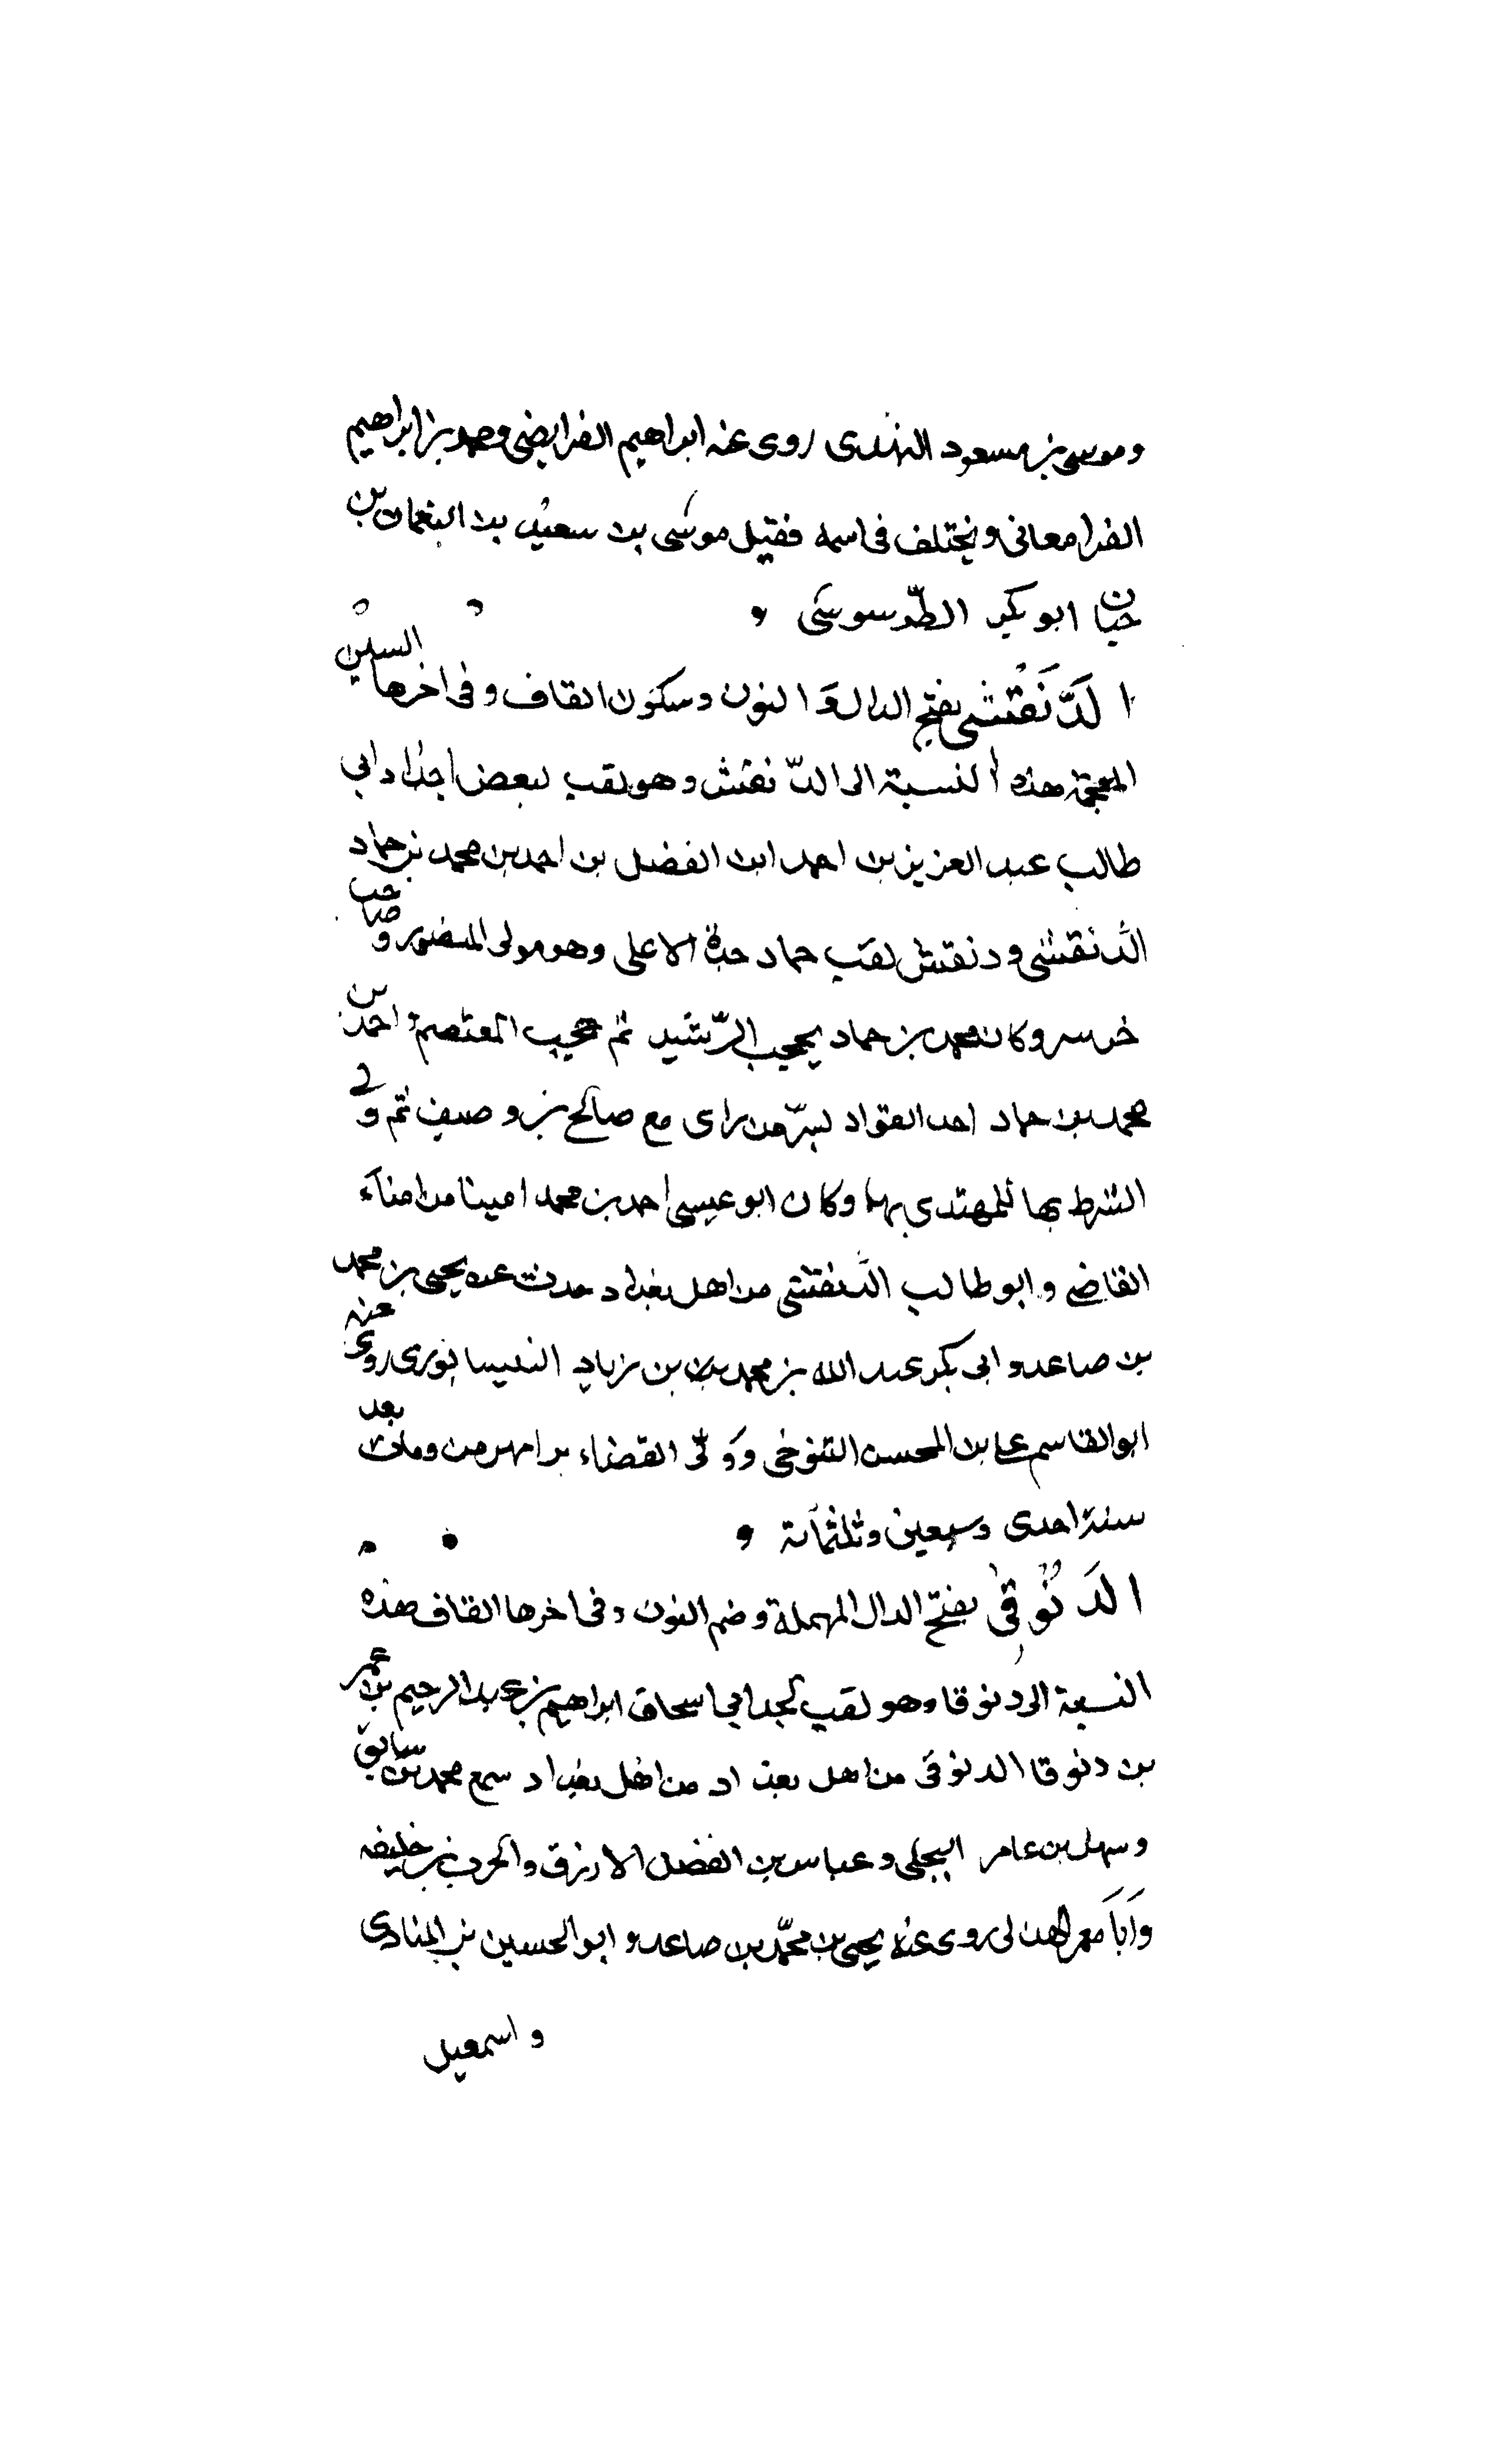 وموسى بن مسعود النهدى روى عنه ابراهيم الفرايضى ومحمد بن ابراهيم
الفرامعانى ويختلف فى اسمه فقيل موسى بن سعيد بن النعمان بن
حبان ابو بكر الطرسوسى
الدَّنَقْشى بفتح الدال والنون وسكون القاف وفى اخرها السين
المعجمة هذه النسبة الى الدنقش وهو لقب لبعض اجداد ابى
طالب عبد العزيز بن احمد ابن الفضل بن احمد بن محمد بن حماد
الدنقشى ودنقش لقب حماد جده الاعلى وهو مولى المنصور وصاحب
حرسه وكان محمد بن حماد يحجب الرّشيد ثم يحجب المعتصم احمد بن
محمد بن حماد احد القواد بسرّ من راى مع صالح بن وصيف ثم ولى
الشرط بها للمهتدى بها وكان ابو عيسى احمد بن محمد امينا من امناء
القاضى وابو طالب الدنقشى من اهل بغداد حدث عنه يحيى بن محمد
بن صاعد وابى بكر عبد الله بن محمد بن زياد النيسابورى روى عنه
ابو القاسم على بن المحسن التنوخى وولّى القضاء برامهرمز ومات بعد
سنة احدى وسبعين وثلثمائة
الدَنُوقى بفتح الدال المهملة وضم النون وفى اخرها القاف هذه
النسبة الى دنوقا وهو لقب لجد ابى اسحاق ابراهيم بن عبد الرحيم بن عمر
بن دنوقا الدنوقى من اهل بغداد من اهل بغداد سمع محمد بن سابق
وسهل بن عامر البجلى وعباس بن الفضل الازرق والحرب بن خليفه
وَاَبَا معمر الهذلى روى عنه يحيى بن محمّد بن صاعد وابو الحسين بن المنادى
واسمعيل